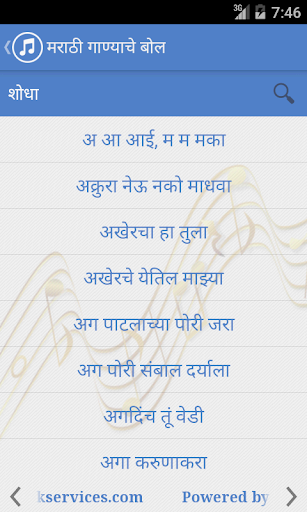 3G 7:46
मराठी गाण्याचे बोल
शोधा
अ आ आई, म म मका
अक्रुरा नेऊ नको माधवा
अखेरचा हा तुला
अखेरचे येतिल माझ्या
अग पाटलाच्या पोरी जरा
अग पोरी संबाल दर्याला
अगदिंच तूं वेडी
अगा करुणाकरा
kservices.com Powered by